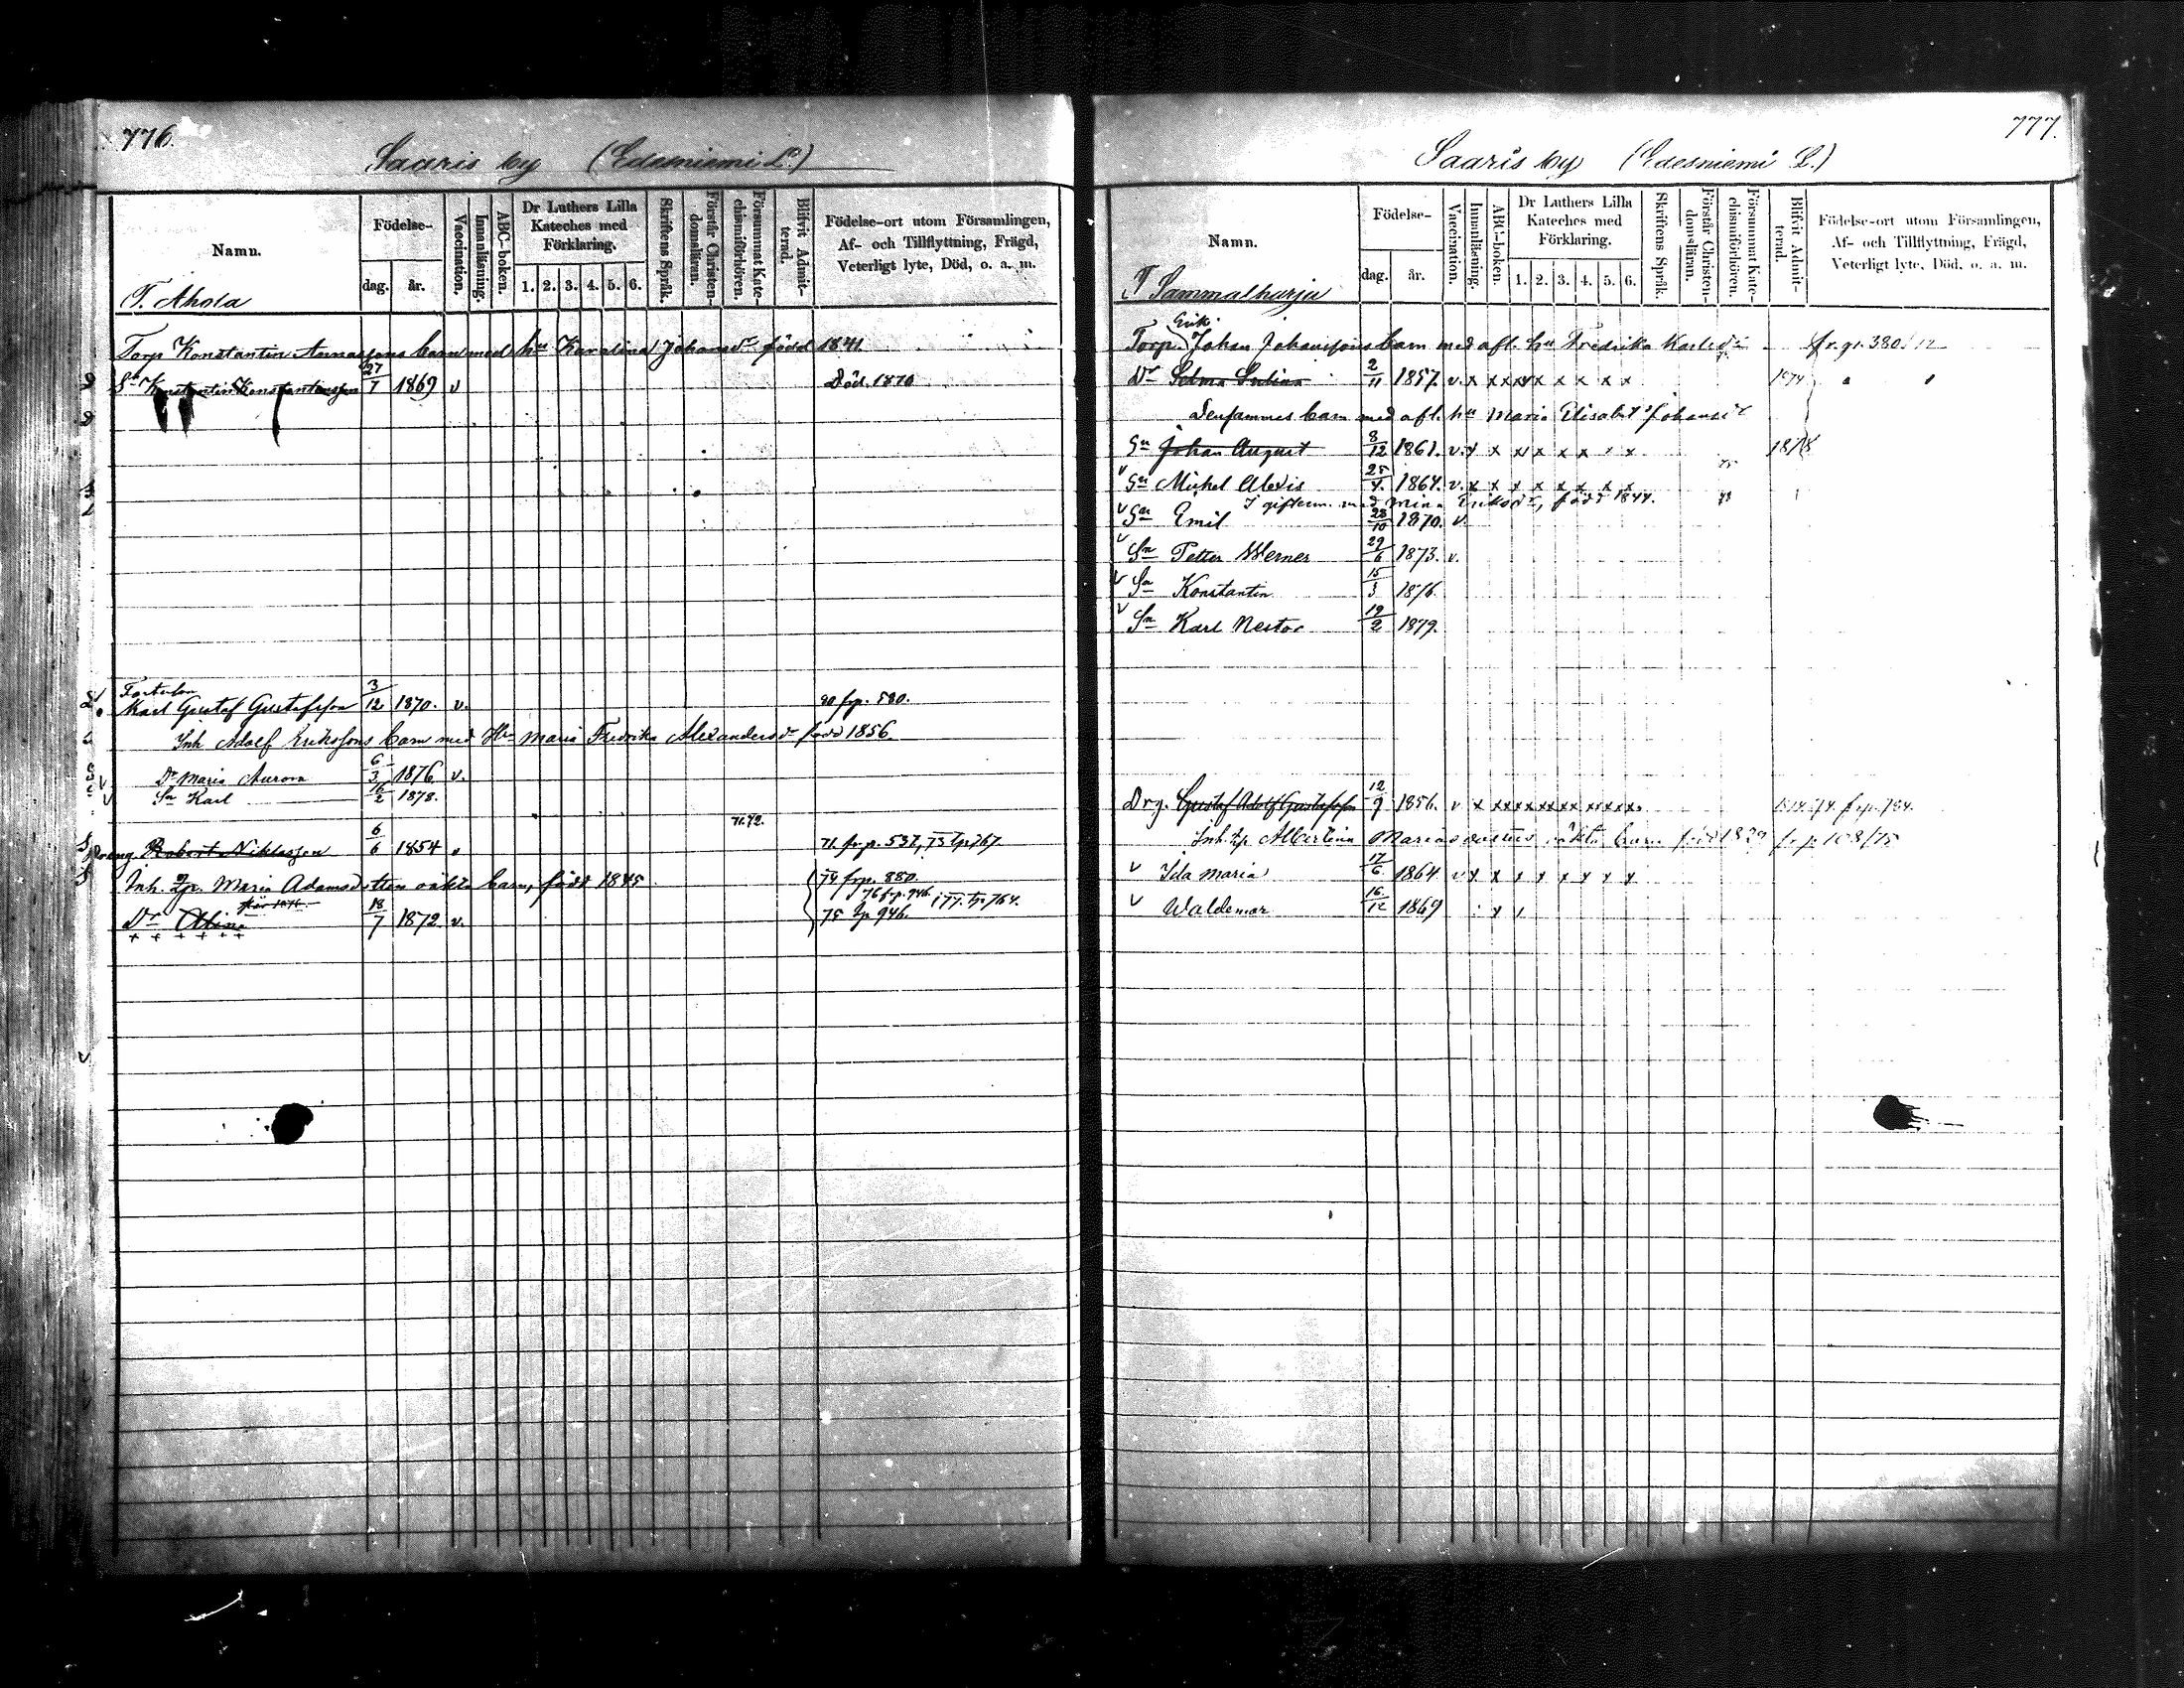 776.
Saaris by (Edesniemi L.)
Namn.
Födelse-
dag.
år.
Vaccination.
Innanläsning.
ABC-boken.
Dr Luthers Lilla Kateches med Förklaring.
1. 2. 3. 4. 5. 6.
Skriftens Språk.
Förstår Christen-domsläran.
Försummat Kate-chismiförhören.
Blifvit Admit-terad.
Födelse-ort utom Församlingen,
Af- och Tillflyttning, Frägd,
Veterligt lyte, Död, o. a. m.
T. Ahola
Torp Konstantin Annassons barn med hu Karolina Johansdr född 1841
Sn Konstantin Konstantinsson 27/7 1869 v Död 1870
Fosterson
Karl Gustaf Gustafsson 3/12 1870. v. 80 frp. 580.
Inh Adolf Erikssons barn med Hu Maria Fredrika Alexandersdr född 1856
Dr Maria Aurora 6/3 1876 v.
v Sn Karl 16/2 1878.
71.72.
Dreng. Robert Niklasson 6/6 1854 . 71 fr.p. 537, 73 tp 767.
Inh. Qp. Maria Adamsdotters oäkta barn, född 1845 74 frp. 880.
76 frp. 946. 77. tp 764.
Dr Alina 18/7 1872 v. 75 tp 946.
+ + + + + +
777.
Saaris by (Edesniemi L.)
Namn.
Födelse-
dag.
år.
Vaccination.
Innanläsning.
ABC-boken.
Dr Luthers Lilla Kateches med Förklaring.
1. 2. 3. 4. 5. 6.
Skriftens Språk.
Förstår Christen-domsläran.
Försummat Kate-chismiförhören.
Blifvit Admit-terad.
Födelse-ort utom Församlingen,
Af- och Tillflyttning, Frägd,
Veterligt lyte, Död, o. a. m.
T Sammalharju
Erik
Torp. Johan Johanssons barn med afl. hu Fredrika Karlsdr fr. p. 380/12
Dr Selma Sulina 2/11 1857. v. x x x x x x x x 1874
Densammes barn med afl. hu Maria Elisabet Johansdr
Sn Johan August 8/12 1861. v. x x x x x x x x 1878
v Sn Mickel Alexis 25/4. 1864. v. x x x x x x x x 75
I gifterm. med Mina Eriksdr, född 1844. 78
v Sn Emil 28/10 1870. v.
v Sn Petter Werner 29/6 1873. v.
v Sn Konstantin 15/3 1876
v Sn Karl Nestor 19/2 1879.
Drg. Gustaf Adolf Gustafsson 12/9 1856. v x x x x x x x x x x x x
Inh. Qp Albertina Mariasdotters oäkta barn född 1839 fr p 108/75
v Ida Maria 17/6 1864 v x x x x x x x x
v Waldemar 16/12 1869 x x